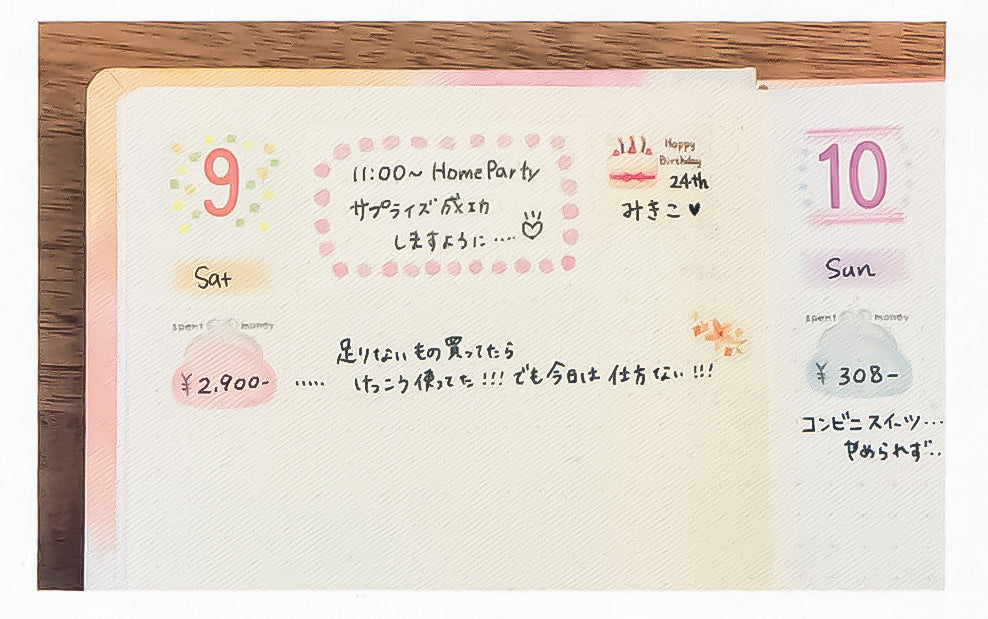 9
Sat
11:00～ Home Party
サプライズ成功
しますように....
Happy
Birthday
24th
みきこ♥
spent money
¥2,900-
..... 足りないもの買ってたら
けっこう使ってた!!! でも今日は仕方ない!!!
10
Sun
spent money
¥308-
コンビニスイーツ...
やめられず..